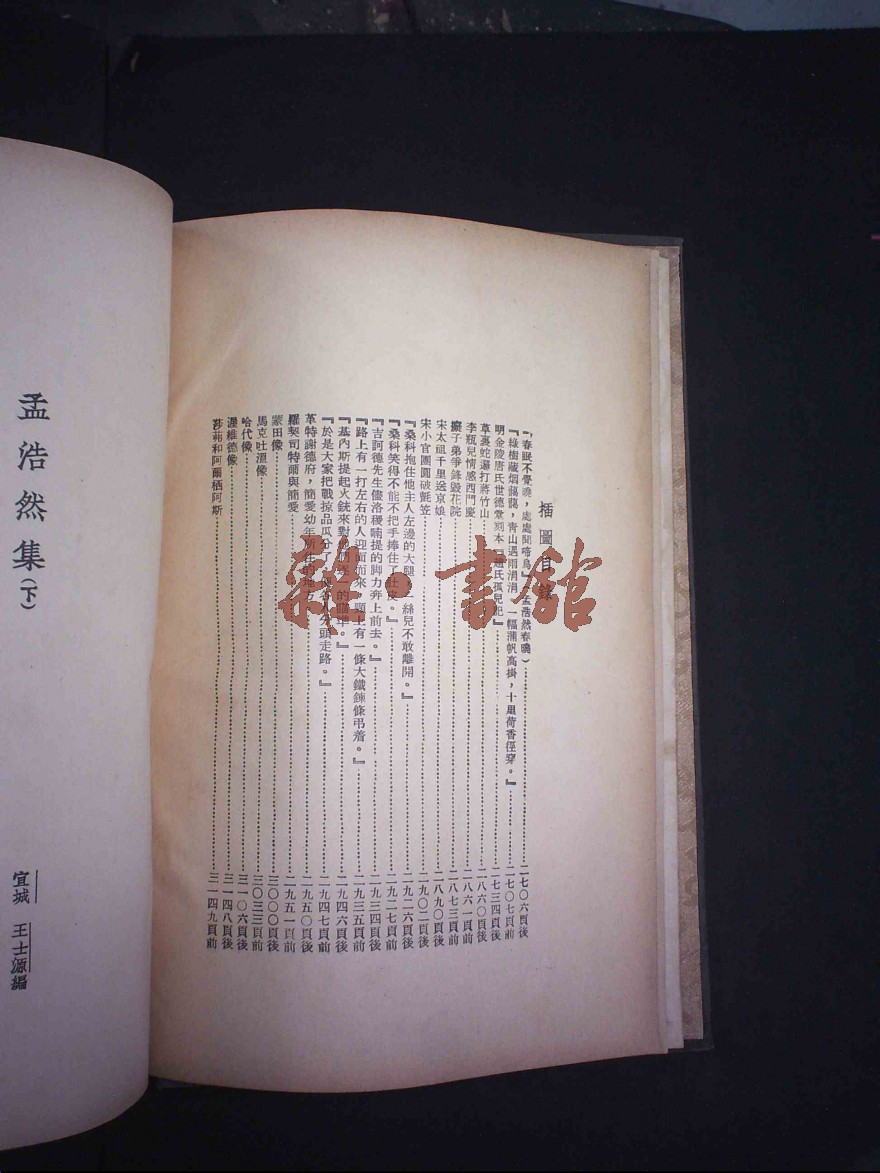 插圖目錄
『春眠不覺曉,處處聞啼鳥』(孟浩然春曉)二七〇六頁後
『綠樹藏烟靄靄,青山遇雨涓涓,一幅蒲帆高掛,十里荷香徑穿。』二七〇七頁前
明金陵唐氏世德堂刻本『趙氏孤兒記』二七三四頁後
草裏蛇邏打蔣竹山二八六〇頁後
李瓶兒情感西門慶二八六一頁前
癡子弟爭鋒毀花院二八七三頁前
宋太祖千里送京娘二八九〇頁後
宋小官團圓破氈笠二九〇二頁後
『桑科抱住他主人左邊的大腿,一絲兒不敢離開。』二九二六頁後
『桑科笑得不能不把手捧住了肚皮。』二九二七頁前
『吉訶德先生儘洛稷喃提的脚力奔上前去。』二九三四頁後
『路上有一打左右的人迎面而來,頸上有一條大鐵鍊條吊着。』二九三五頁前
『基內斯提起火銃來對 的瞄準。』二九四六頁後
『於是大家把戰掠品瓜分了, 分頭走路。』二九四七頁前
革特謝德府,簡愛幼年所住的地方二九五〇頁後
羅契司特爾與簡愛二九五一頁前
蒙田像三〇〇〇頁後
馬克吐溫像三〇三三頁前
哈代像三一〇六頁後
渥維德像三一四八頁後
莎茀和阿爾栖阿斯三一四九頁前
孟浩然集(下)
宜城 王士源編
雜·書館